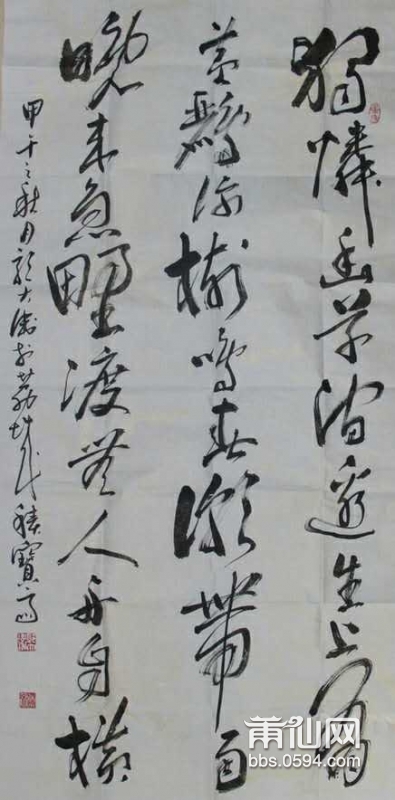 獨憐幽草澗邊生上有
黃鸝深樹鳴春潮帶雨
晚来急野渡無人舟自横
甲午之秋月於荔城積寶斋
莆仙网
bbs.0594.com